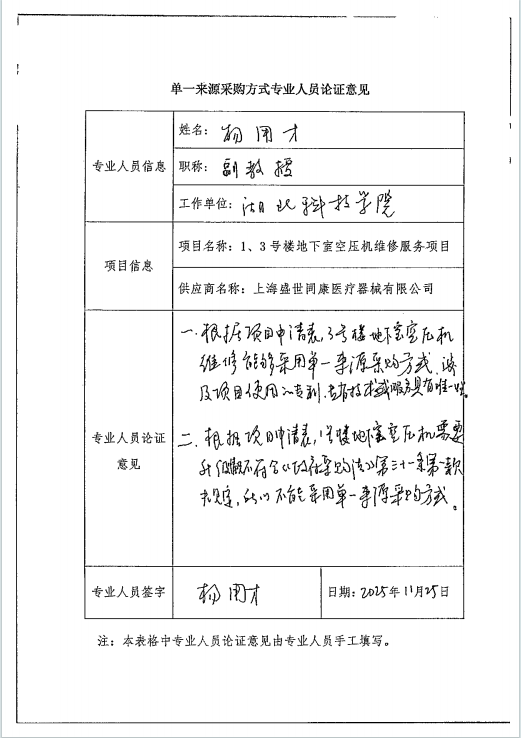 单一来源采购方式专业人员论证意见
专业人员信息
姓名：杨用才
职称：副教授
工作单位：湖北科技学院
项目信息
项目名称：1、3号楼地下室空压机维修服务项目
供应商名称：上海盛世同康医疗器械有限公司
专业人员论证
意见
一、根据项目申请表，3号楼地下室空压机
维修能够采用单一来源采购方式，涉
及项目使用的专利、专有技术或服务具有唯一性。
二、根据项目申请表，1号楼地下室空压机需要
升级 不符合《政府采购法》第三十一条第一款
规定，所以不能采用单一来源采购方式。
专业人员签字
杨用才
日期：2025年11月25日
注：本表格中专业人员论证意见由专业人员手工填写。